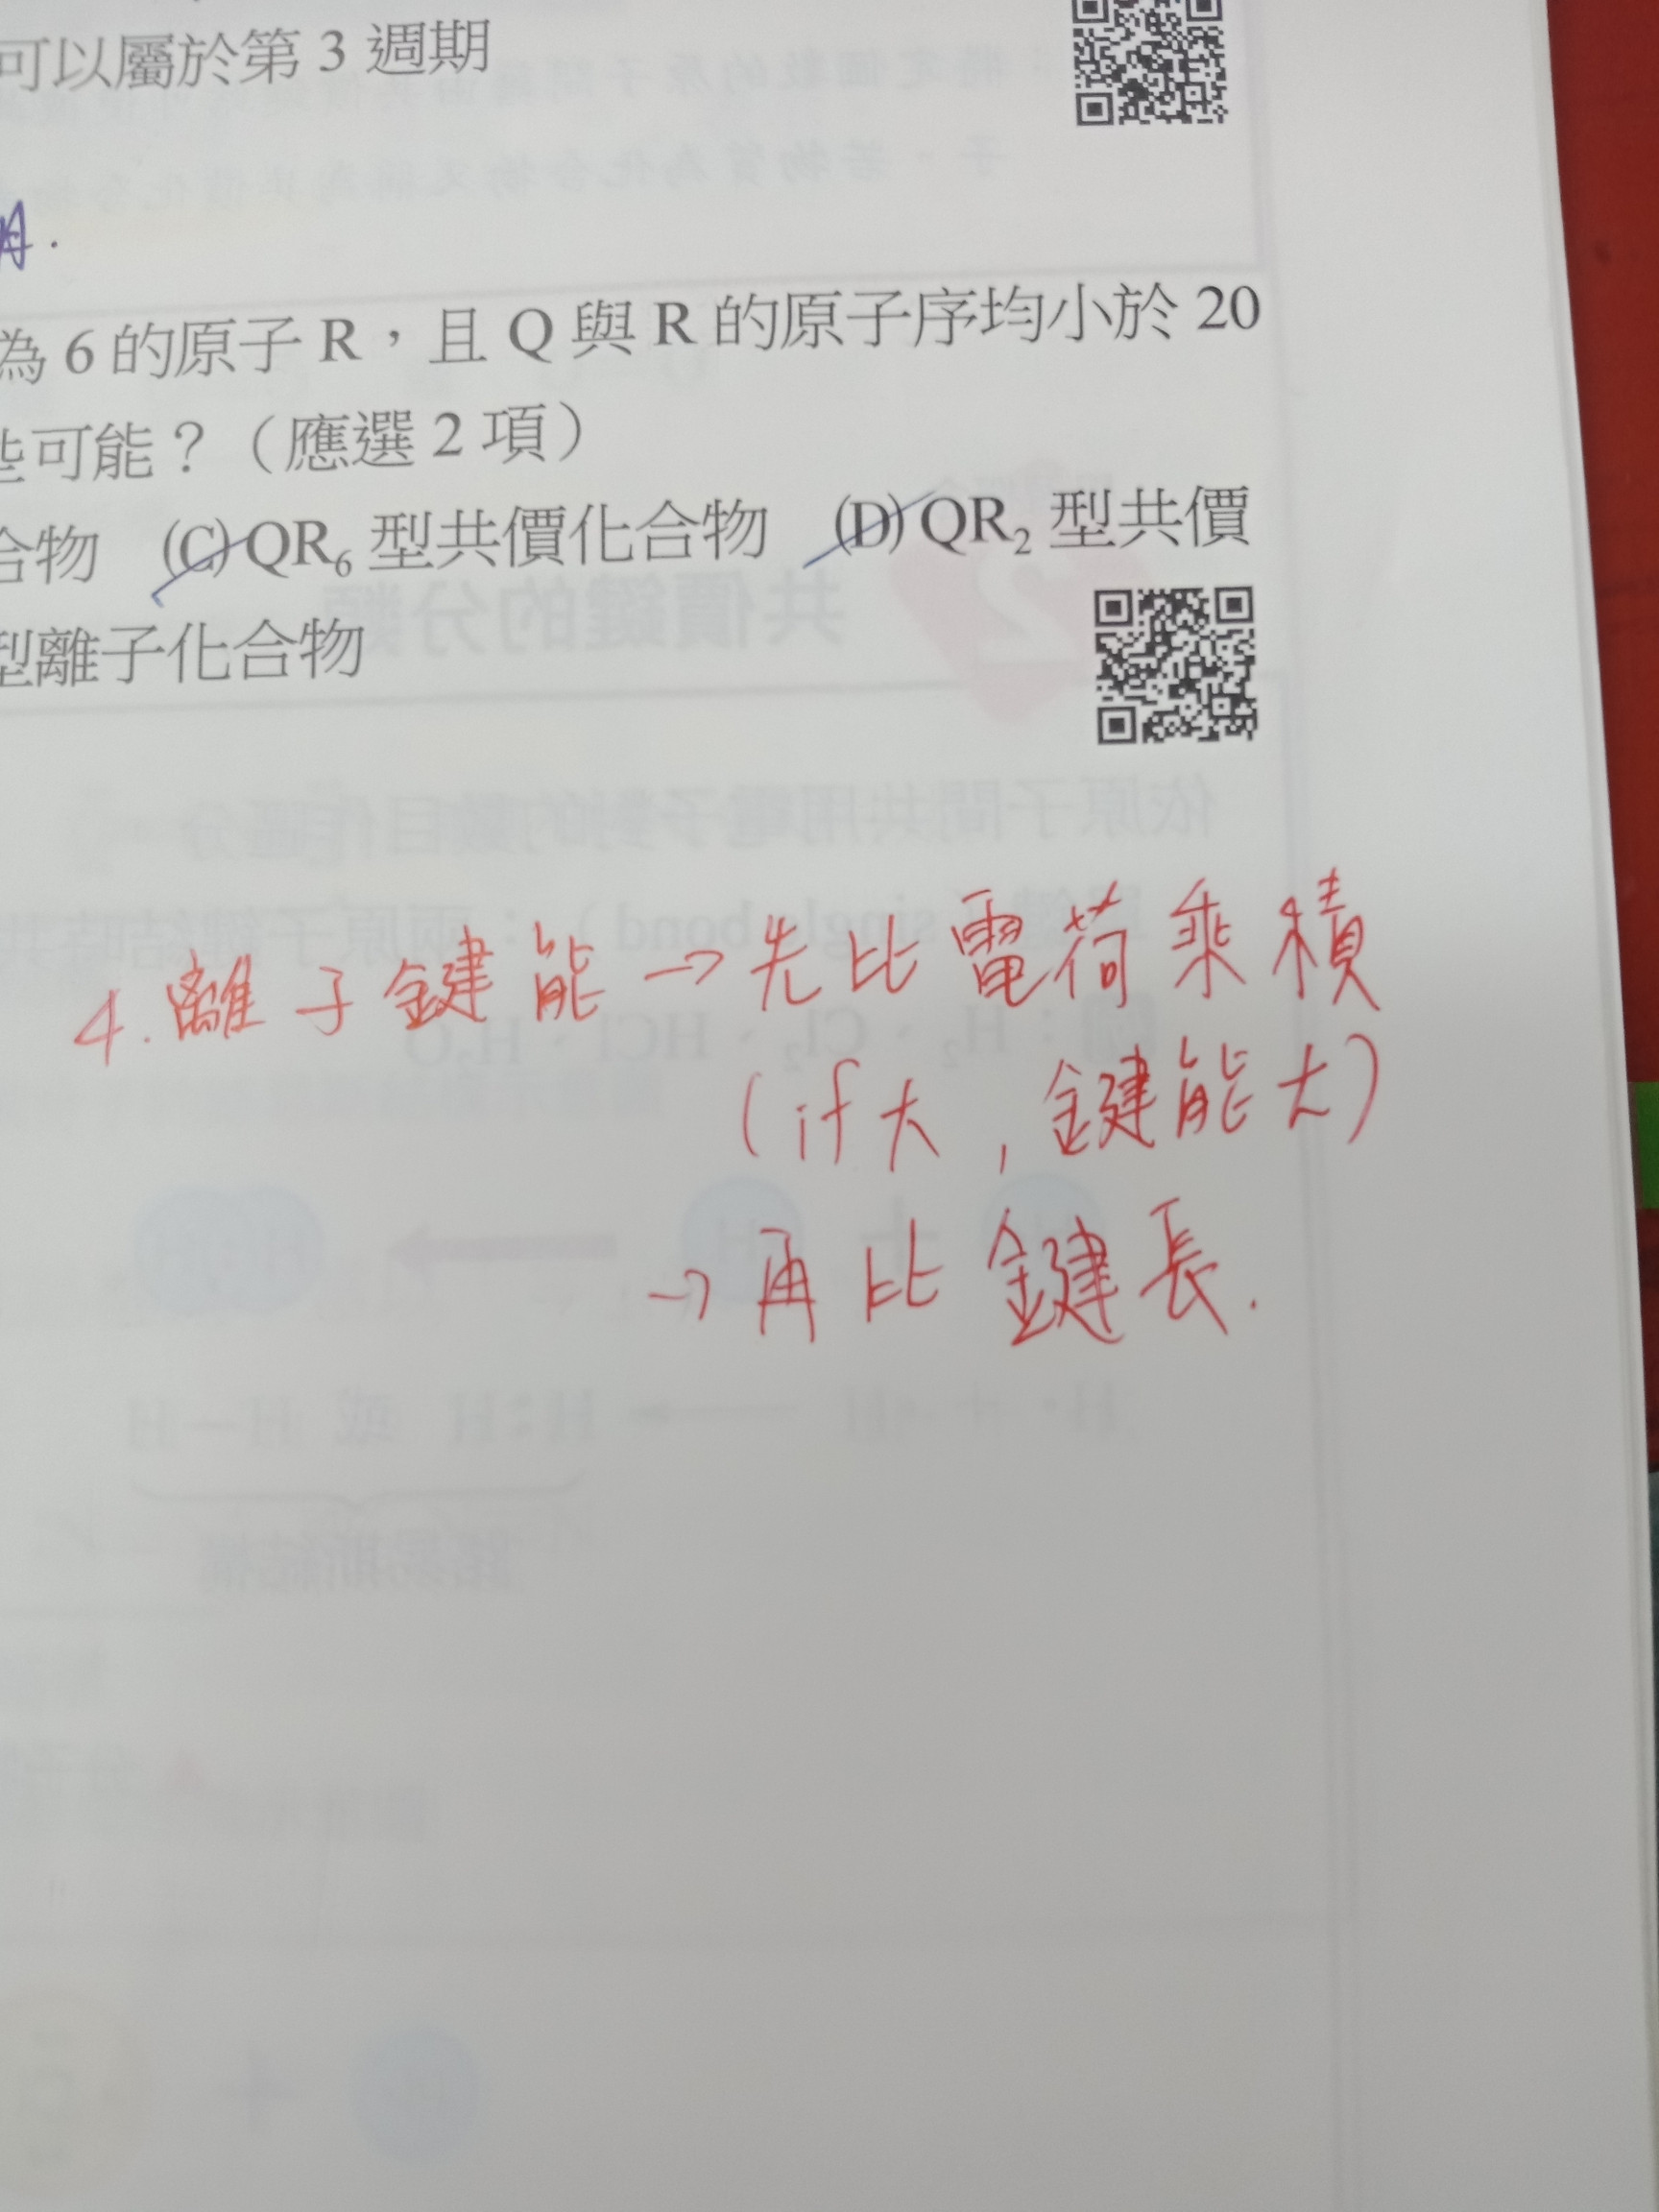 可以屬於第 3 週期
為 6 的原子 R，且 Q 與 R 的原子序均小於 20
些可能？（應選 2 項）
合物 (C) QR₆ 型共價化合物 (D) QR₂ 型共價
型離子化合物
4. 離子鍵能 → 先比電荷乘積
(if 大, 鍵能大)
→ 再比鍵長.